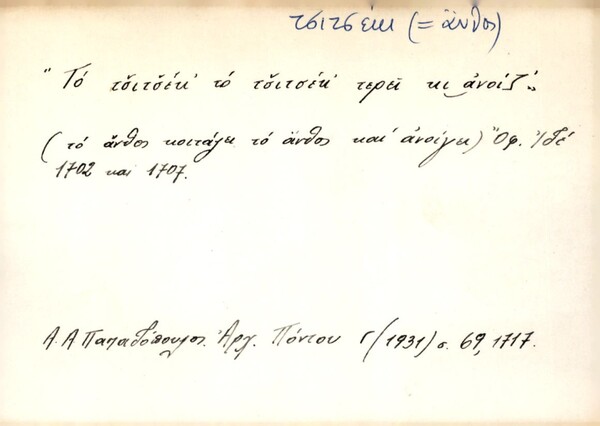 τσιτσέκ (= ἄνθος)
"Τό τσ̌ιτσ̌έκ' τό τσ̌ιτσέκ' τερεῖ κι ἀνοίζ'„
(τό ἄνθος κοιτάζει τό ἄνθος καί ἀνοίγει) Ὄφ.
1702 καί 1707.
Α. Α Παπαδόπουλος. Ἀρχ. Πόντου Γ (1931) σ. 69, 1717.